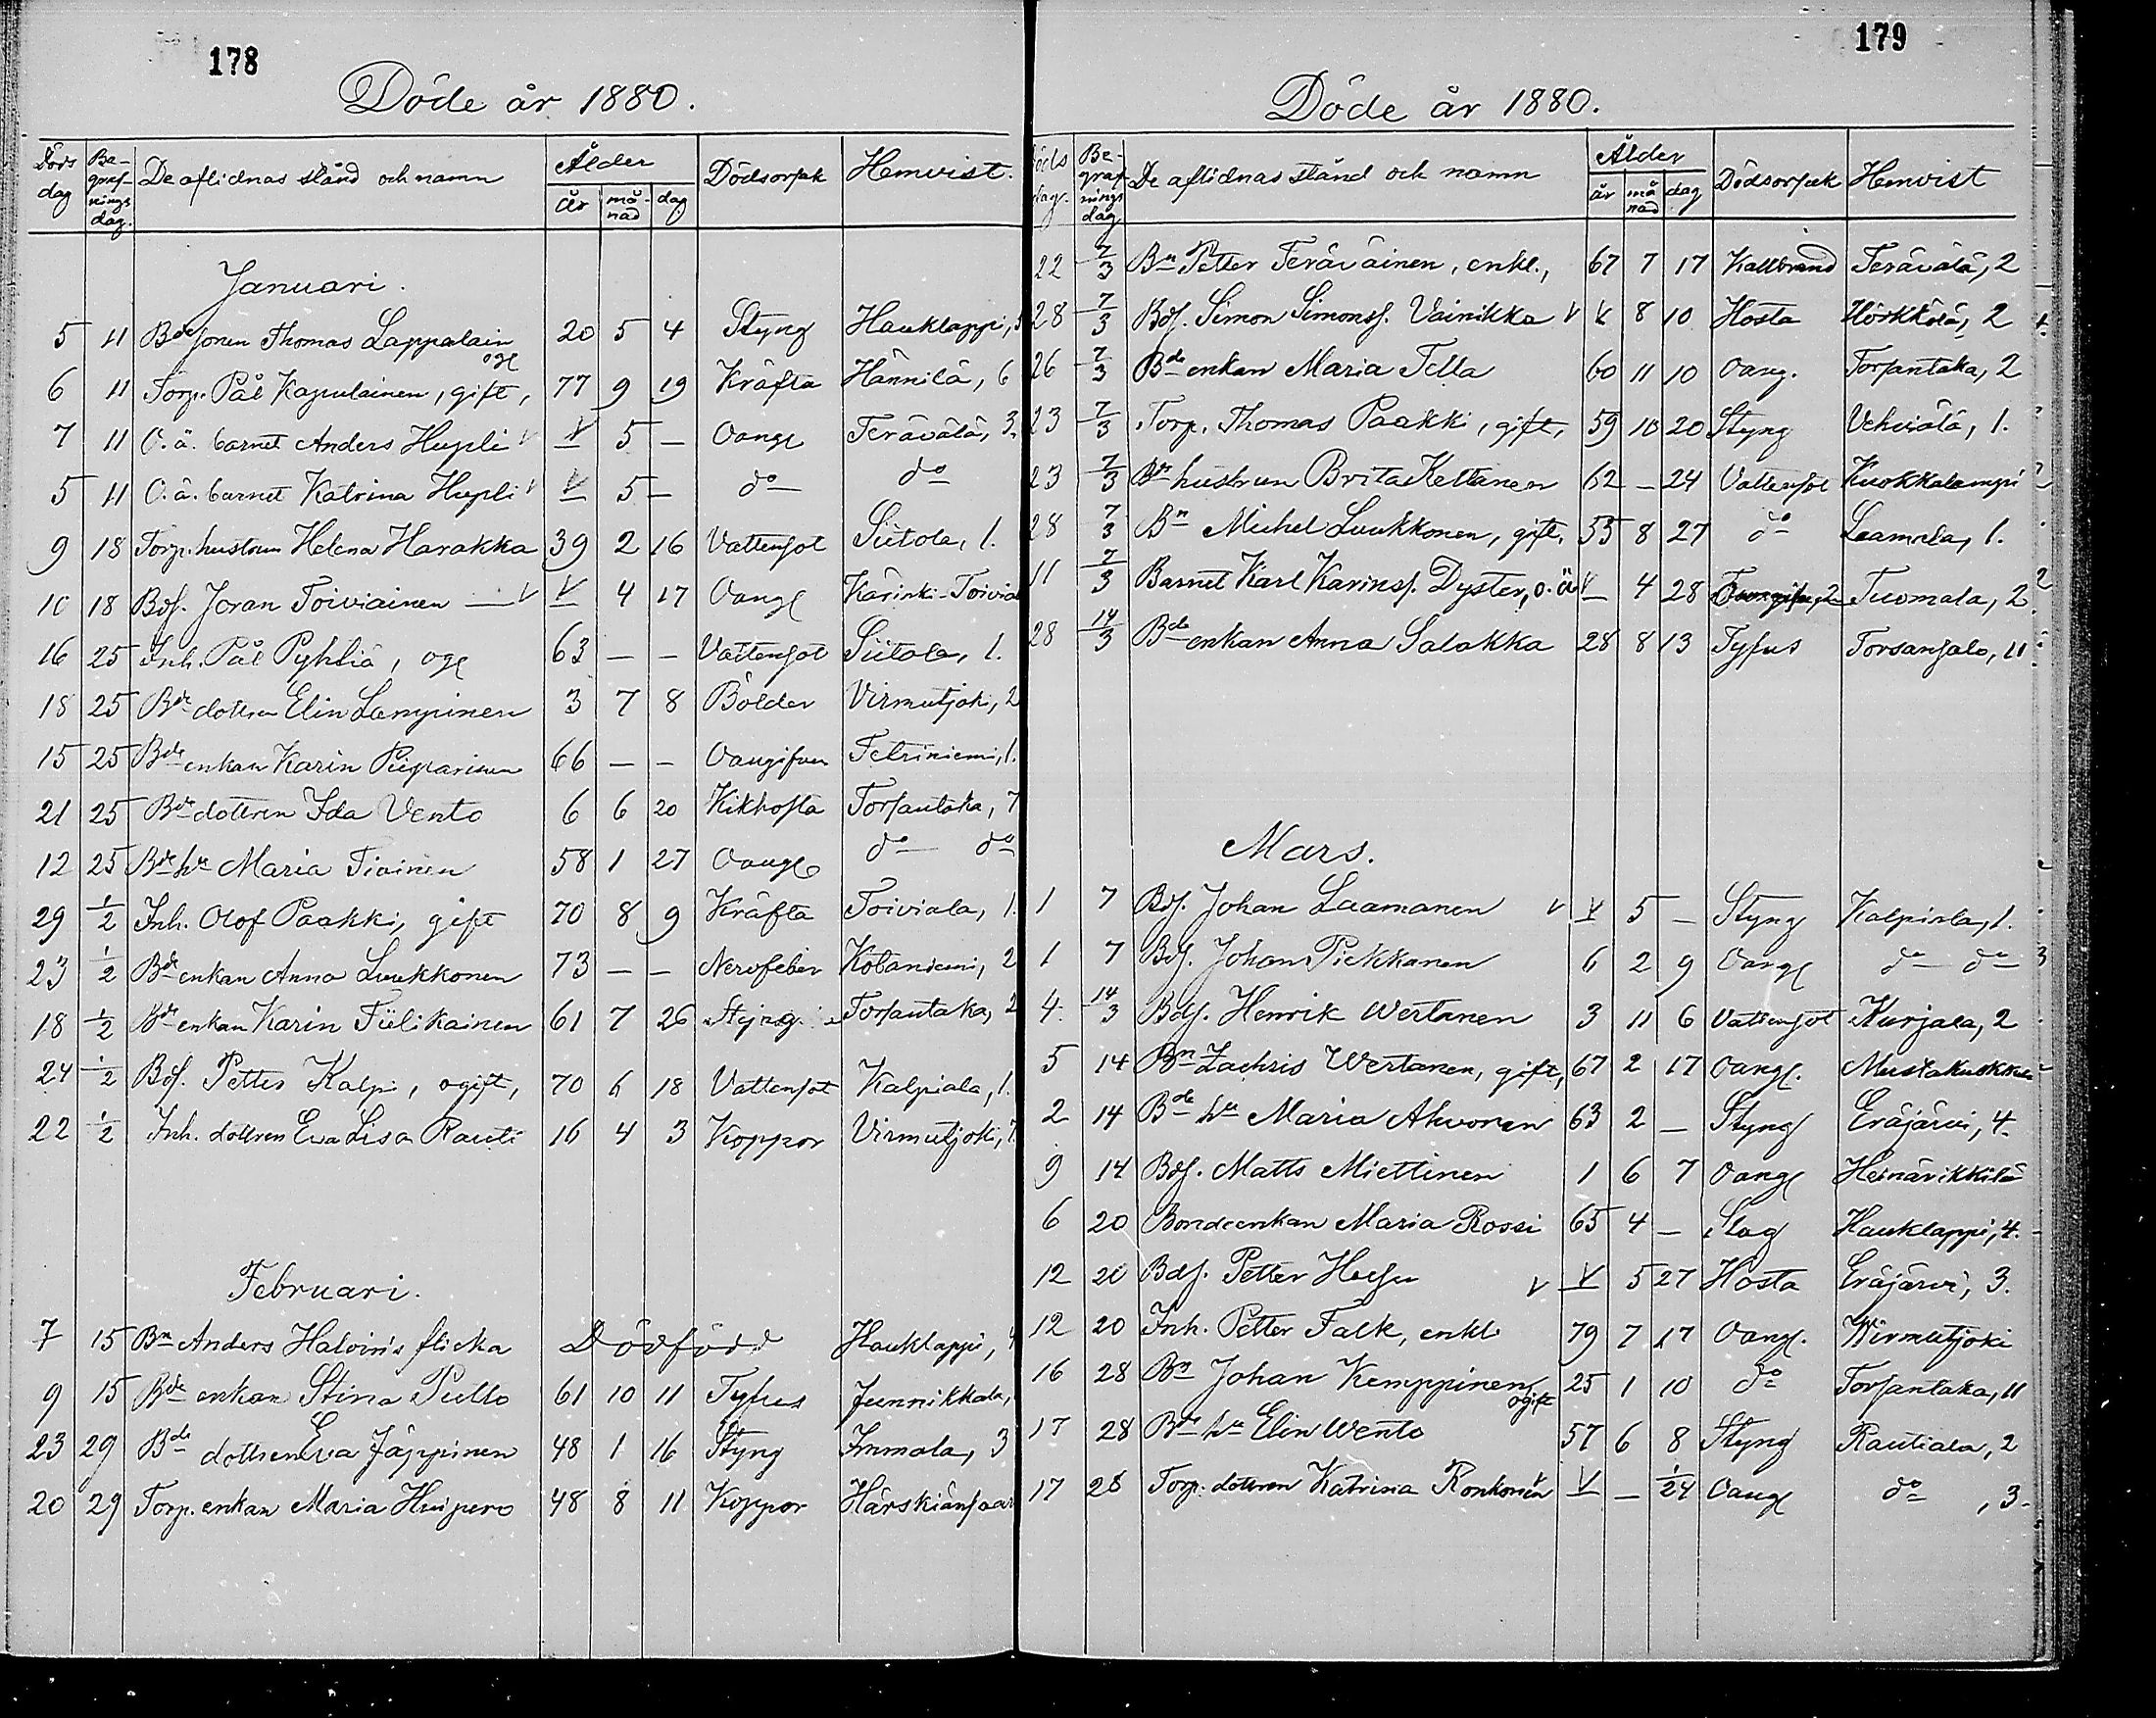 178
Döde år 1880.
Döds dag | Be-graf-nings dag. | De aflidnas stånd och namn | Ålder år må-nad dag | Dödsorsak | Hemvist.
Januari.
5 11 Bdesonen Thomas Lappalain ogf 20 5 4 Styng Hauklappi, 5
6 11 Torp. Pål Kapulainen, gift, 77 9 19 Kräfta Hännilä, 6
7 11 O.ä. barnet Anders Hupli v V 5 — Oangf Terävälä, 3.
5 11 O.ä. barnet Katrina Hupli v V 5 — do do
9 18 Torp. hustrun Helena Harakka 39 2 16 Vattensot Siitola, 1.
10 18 Bds. Joran Toiviainen — v V 4 17 Oangf Kärinki-Toivial
16 25 Inh. Pål Pyhliä, ogf 63 — — Vattensot Siitola, 1.
18 25 Bde dottren Elin Lampinen 3 7 8 Bölder Virmutjoki, 2
15 25 Bde enkan Karin Pieparinen 66 — — Oangifven Tetriniemi, 1.
21 25 Bde dottren Ida Vento 6 6 20 Kikhosta Torsantaka, 7
12 25 Bde hu Maria Tiainen 58 1 27 Oangf do do
29 1/2 Inh. Olof Paakki, gift 70 8 9 Kräfta Toiviala, 1.
23 1/2 Bde enkan Anna Luukkonen 73 — — Nervfeber Kotaniemi, 2
18 1/2 Bde enkan Karin Tiilikainen 61 7 26 Styng Torsantaka, 2
24 1/2 Bds. Petter Kalpi, ogift, 70 6 18 Vattensot Kalpiala, 1.
22 1/2 Inh. dottren Eva Lisa Rauti 16 4 3 Koppor Virmutjoki, 7.
Februari.
7 15 Bn Anders Halvin's flicka Dödfödd Hauklappi, 4
9 15 Bde enkan Stina Pullo 61 10 11 Tyfus Junnikkala,
23 29 Bde dottren Eva Jäppinen 48 1 16 Styng Immala, 3
20 29 Torp. enkan Maria Huipero 48 8 11 Koppor Härskiänsaar
179
Döde år 1880.
Döds dag. | Be-graf-nings dag | De aflidnas stånd och namn | Ålder år må nad dag | Dödsorsak | Hemvist
22 7/3 Bn Petter Teräväinen, enkl., 67 7 17 Kallbrand Terävälä, 2
28 7/3 Bds. Simon Simonss. Vainikka v V 8 10 Hosta Hörkkölä, 2
26 7/3 Bde enkan Maria Tella 60 11 10 Oang. Torsantaka, 2
23 7/3 Torp. Thomas Paakki, gift, 59 10 20 Styng Vehvialä, 1.
23 7/3 Bde hustrun Brita Kettanen 62 — 24 Vattensot Kuokkalampi
28 7/3 Bn Michel Luukkonen, gift. 55 8 27 do Laamala, 1.
11 7/3 Barnet Karl Karinss. Dyster, o.ä v — 4 28 Oangifven Tuomala, 2
28 14/3 Bde enkan Anna Salakka 28 8 13 Tyfus Torsansalo, 11
Mars.
1 7 Bds. Johan Laamanen v V 5 — Styng Kalpiala, 1.
1 7 Bds. Johan Piekkanen 6 2 9 Oangf do do
4. 14/3 Bds. Henrik Wertanen 3 11 6 Vattensot Kurjala, 2
5 14 Bn Zachris Wertanen, gift, 67 2 17 Oangf. Mustakukkula
2 14 Bde hu Maria Ahvonen 63 2 — Styng Eräjärvi, 4.
9 14 Bds. Matts Miettinen 1 6 7 Oangf Heinärikkilä
6 20 Bondeenkan Maria Rossi 65 4 — Slag Hauklappi, 4.
12 20 Bds. Petter Heesu v V 5 27 Hosta Eräjärvi, 3.
12 20 Inh. Petter Falk, enkl. 79 7 17 Oangf. Wirmutjoki
16 28 Bn Johan Kemppinen ogift 25 1 10 do Torsantaka, 11
17 28 Bde hu Elin Wento 57 6 8 Styng Rautiala, 2
17 28 Torp. dottren Katrina Ronkonen v V — 1/24 Oangf do , 3.